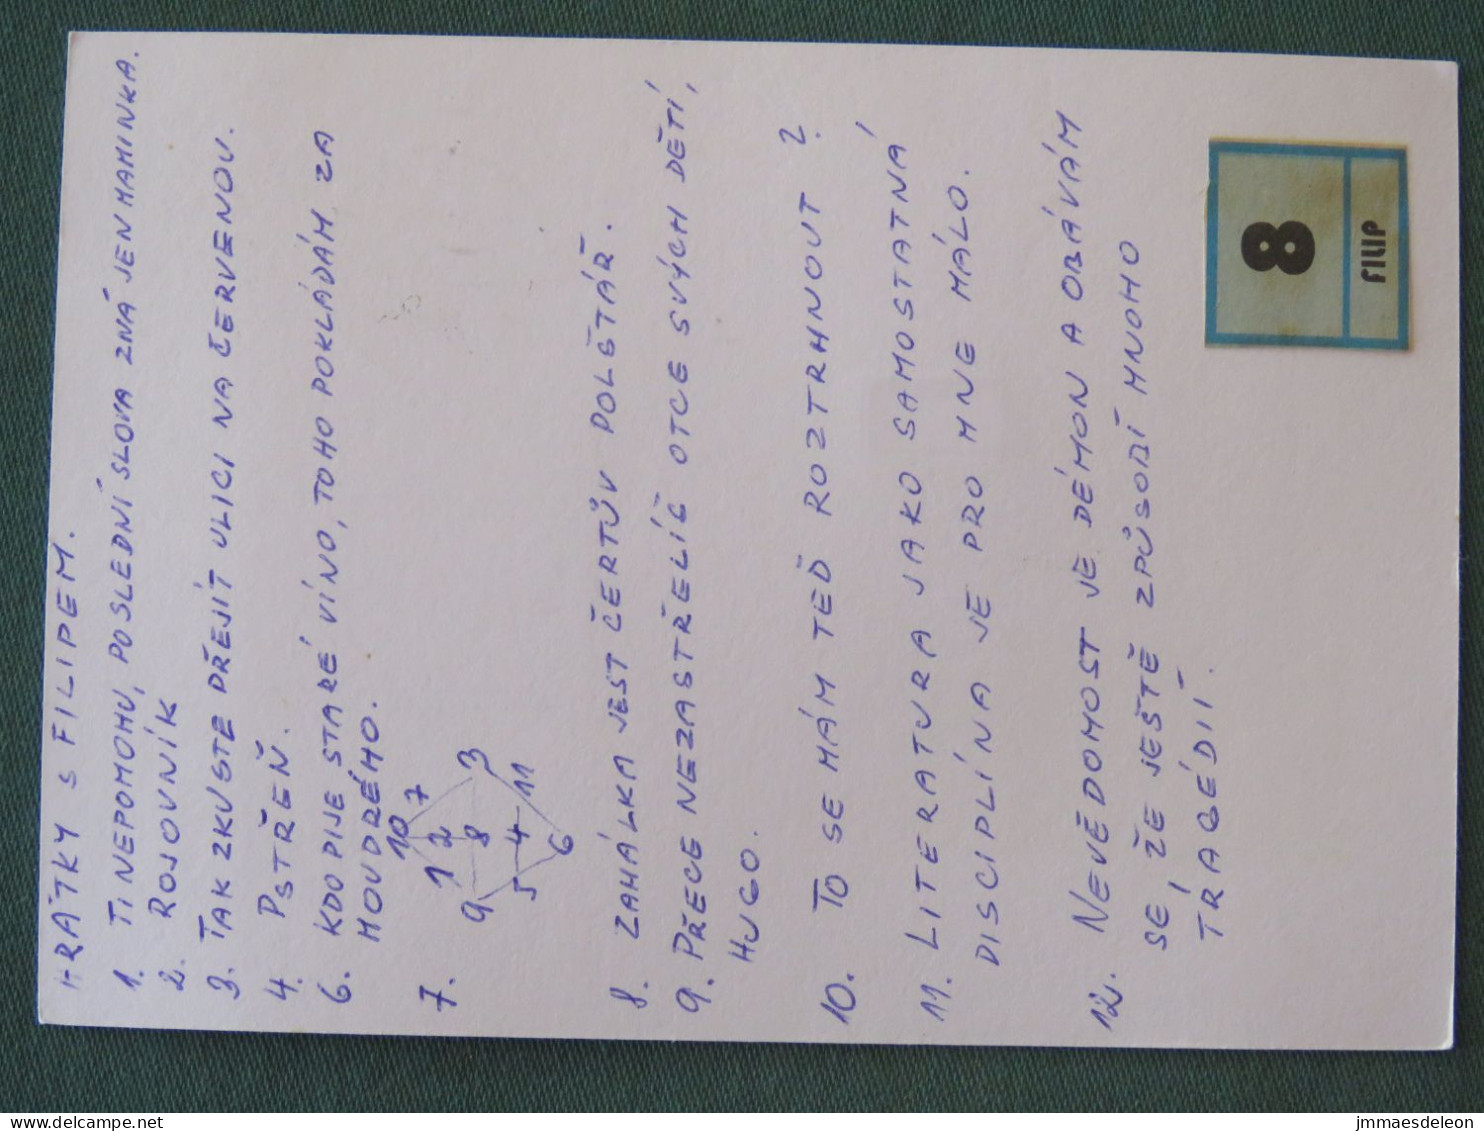 HRÁTKY S FILIPEM.
1. TI NEPOMOHU, POSLEDNÍ SLOVA ZNÁ JEN MAMINKA.
2. ROJOVNÍK
3. TAK ZKUSTE PŘEJÍT ULICI NA ČERVENOU.
4. PSTŘEŇ.
6. KDO PIJE STARÉ VÍNO, TOHO POKLÁDÁM ZA
MOUDRÉHO.
7.
10 7
1 2 3
9 8
5 4 11
6
8. ZAHÁLKA JEST ČERTŮV POLŠTÁŘ.
9. PŘECE NEZASTŘELÍŠ OTCE SVÝCH DĚTÍ,
HUGO.
10. TO SE MÁM TEĎ ROZTRHNOUT?
11. LITERATURA JAKO SAMOSTATNÁ
DISCIPLÍNA JE PRO MNE MÁLO.
12. NEVĚDOMOST JE DÉMON A OBÁVÁM
SE, ŽE JEŠTĚ ZPŮSOBÍ MNOHO
TRAGÉDIÍ.
8
FILIP
delcampe.net
jmmaesdeleon